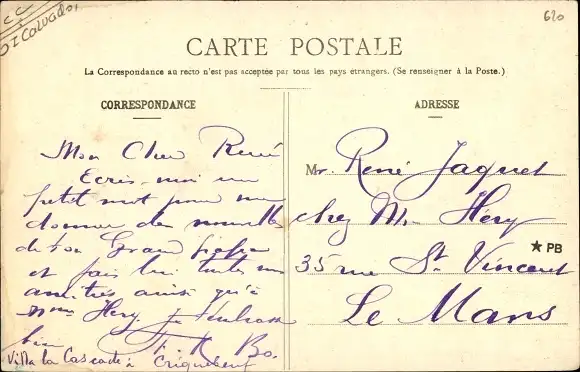 CC
DI Calvados
620
CARTE POSTALE
La Correspondance au recto n'est pas acceptée par tous les pays étrangers. (Se renseigner à la Poste.)
CORRESPONDANCE
Mon Cher René
Ecris-moi un
petit mot pour me
donner des nouvelles
de ton Grand frère
et fais lui toutes mes
amitiés ainsi qu'à
Mme Hery je t'embrasse
bien
Villa la Cascade à Criquebeuf
ADRESSE
Mr. René Jaquet
chez Mr Hery
35 rue St. Vincent
Le Mans
★ PB